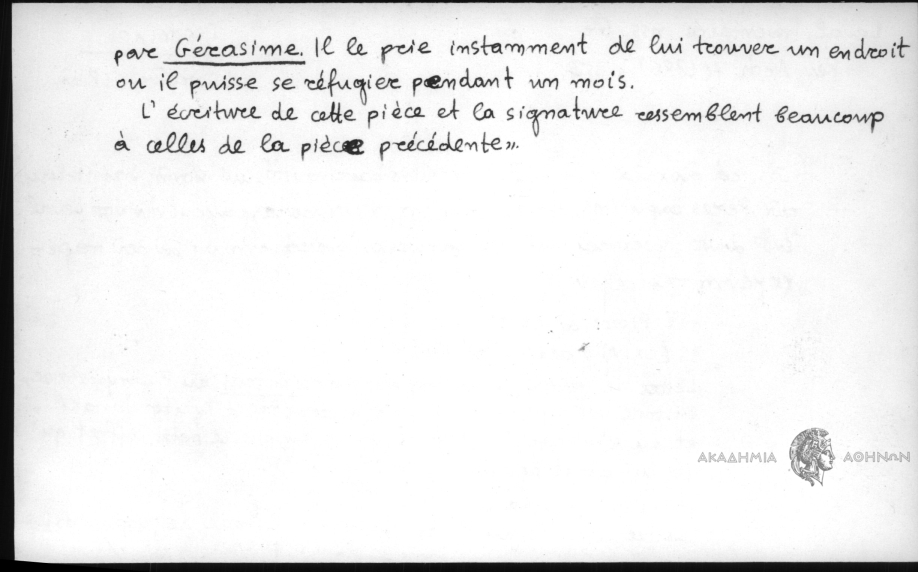 par Gérasime. Il le prie instamment de lui trouver un endroit
ou il puisse se réfugier pendant un mois.
L'écriture de cette pièce et la signature ressemblent beaucoup
à celles de la pièce précédente».
ΑΚΑΔΗΜΙΑ ΑΘΗΝΩΝ